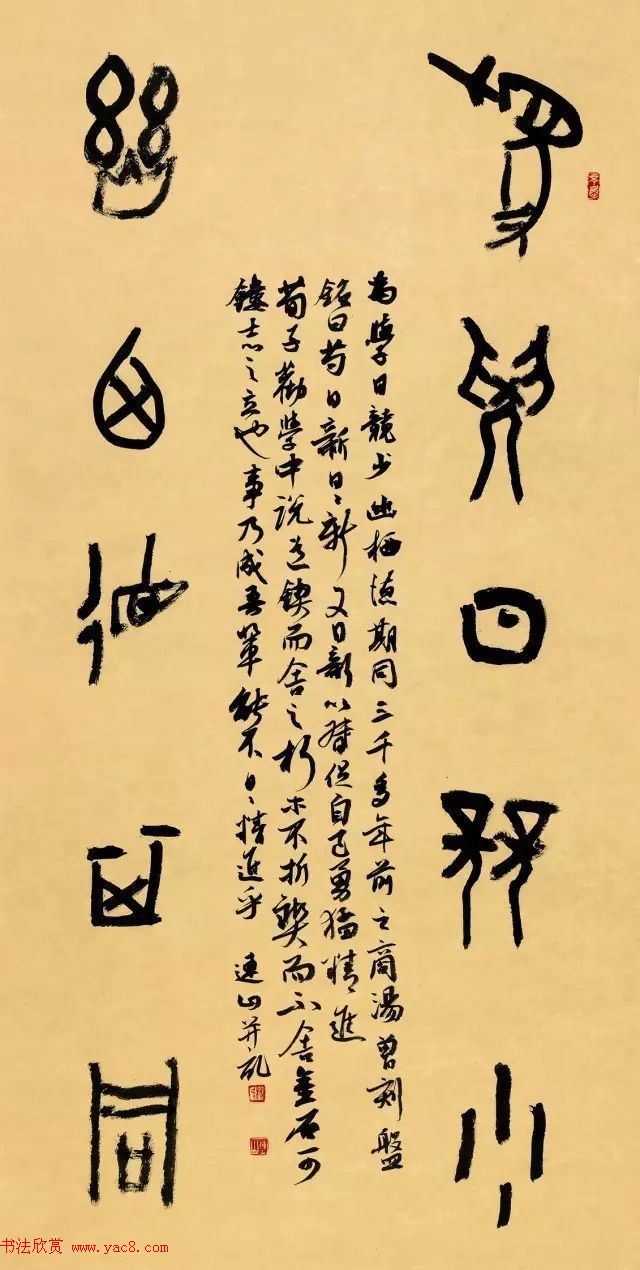 為學日競少
幽栖期同
為學日競少幽栖期同三千多年前之商湯曾刻盤
銘曰苟日新日〻新又日新以督促自己勇猛精進
荀子勸學中說道鍥而舍之朽木不折鍥而不舍金石可
鏤志之立也事乃成吾輩能不日〻精進乎 連山并記
书法欣赏 www.yac8.com